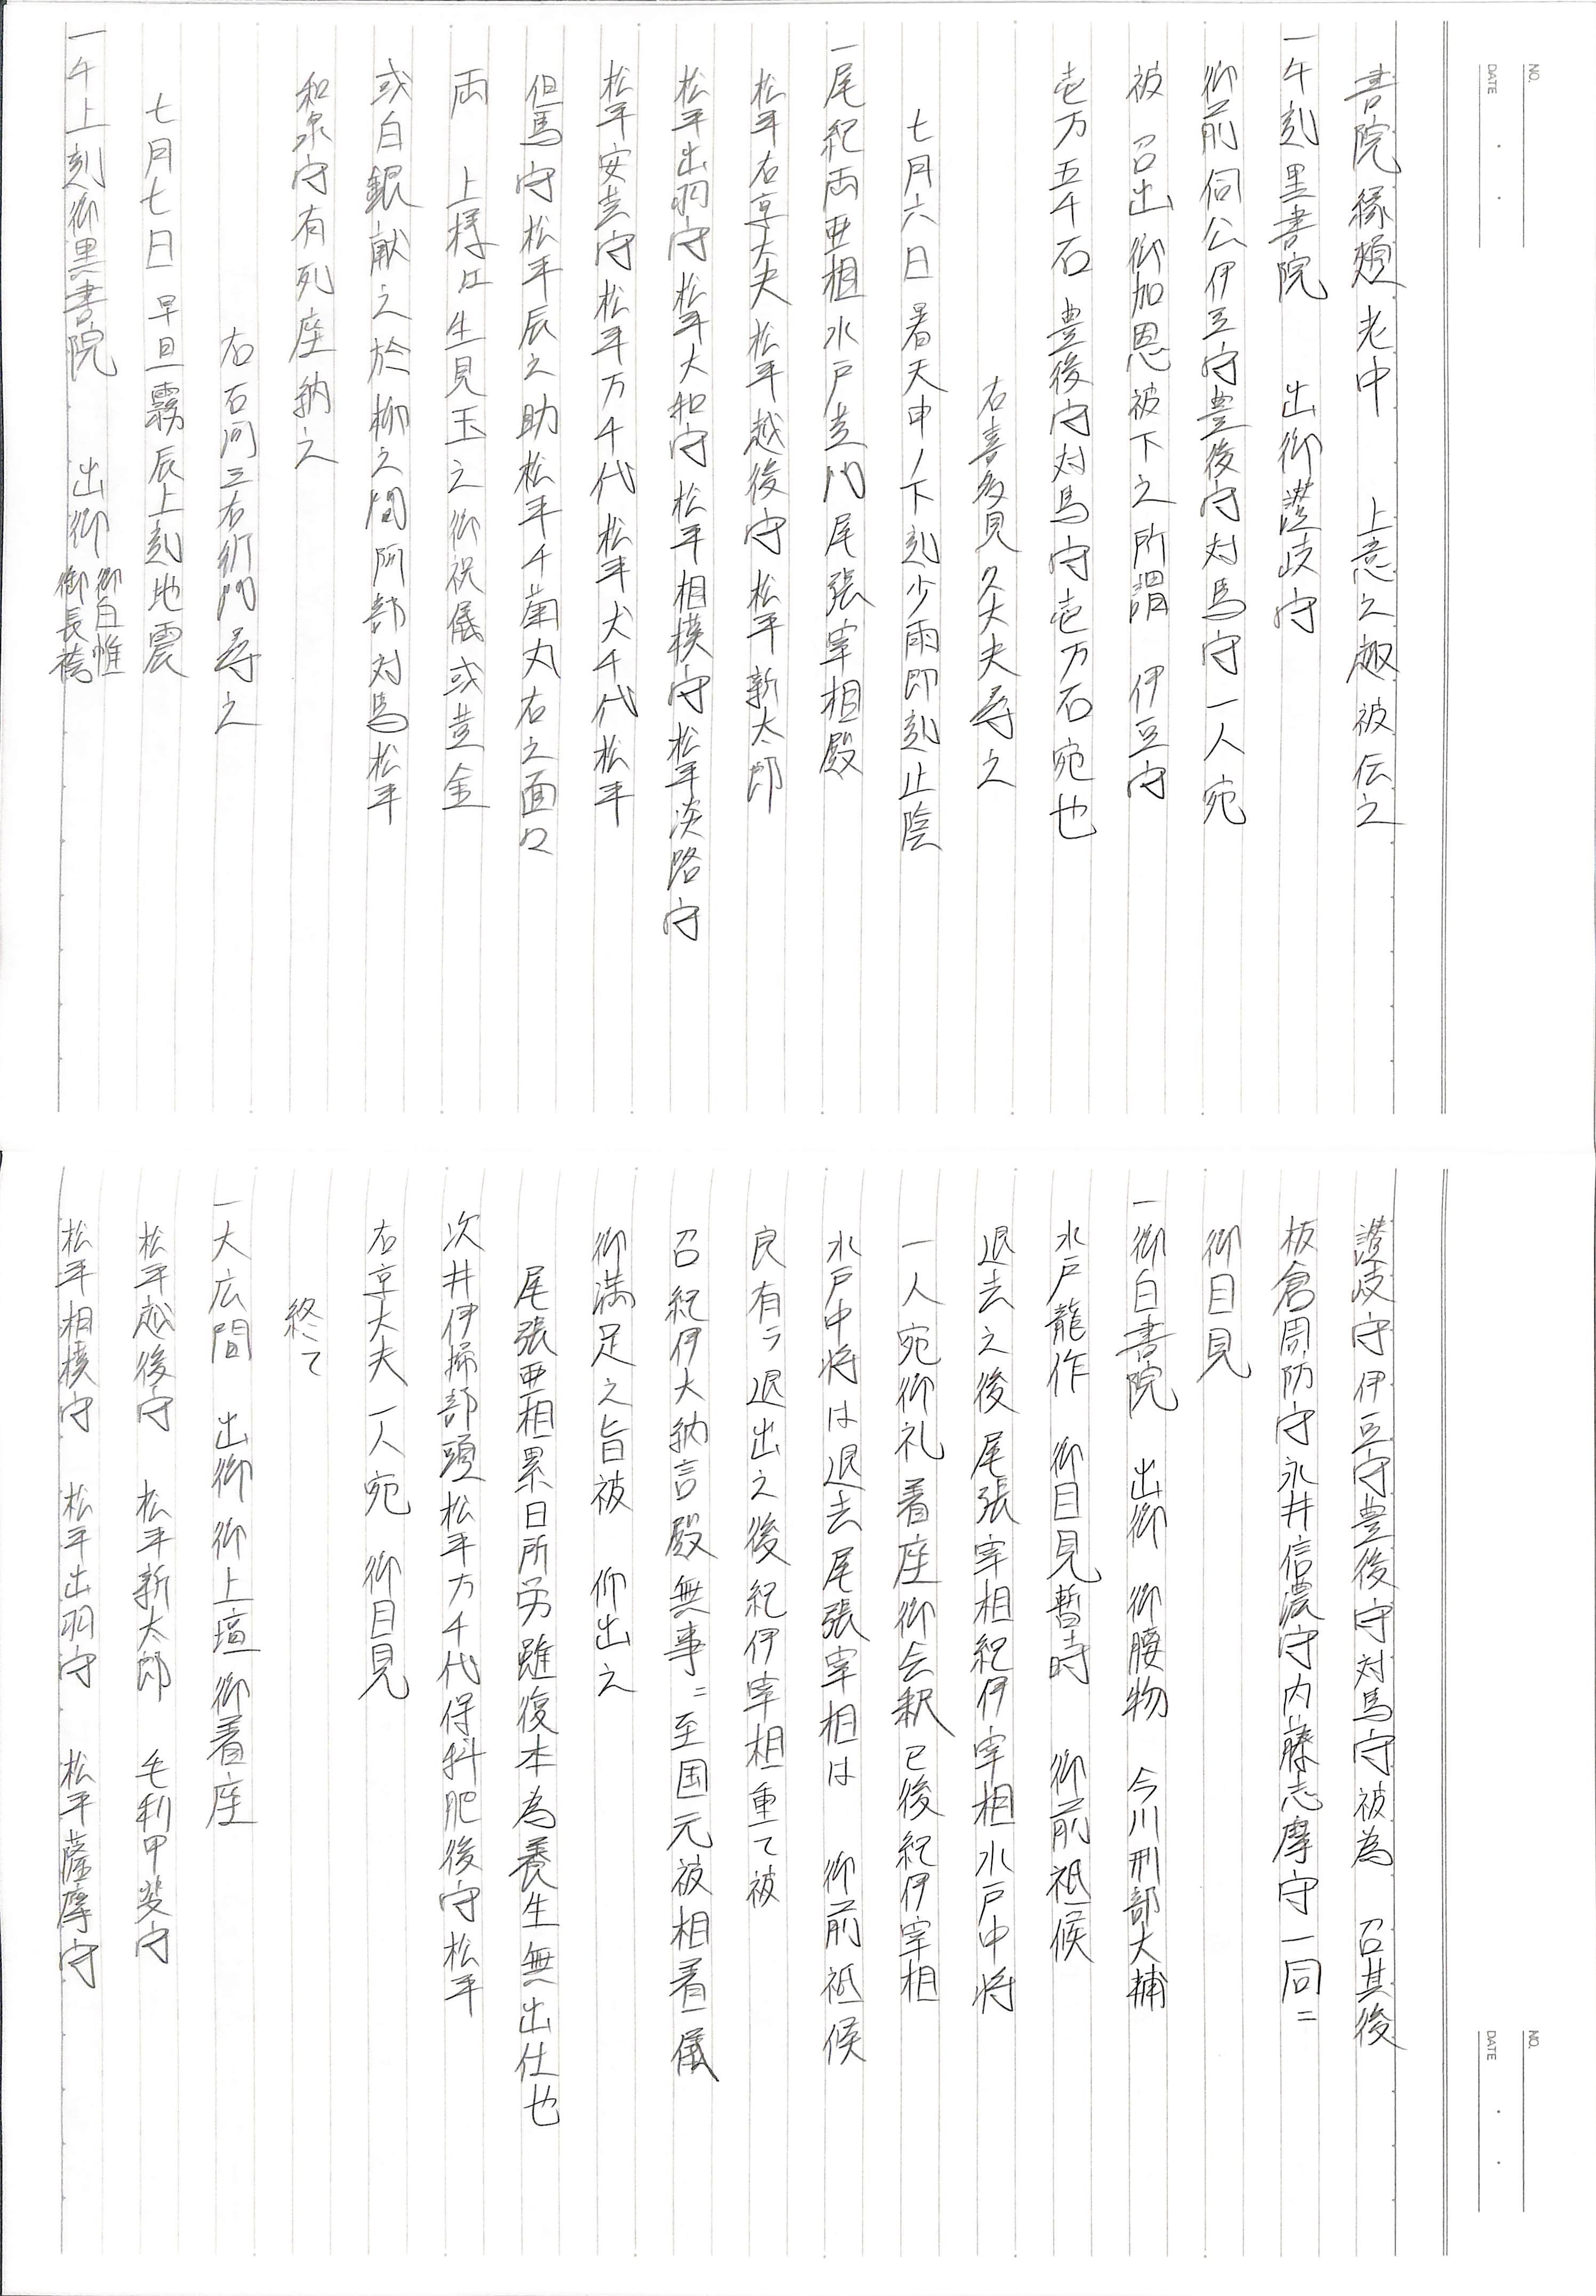 書院縁頬老中　上意之趣被伝之
一午刻黒書院　出御讃岐守
御前伺公伊豆守豊後守対馬守一人宛
被　召出御加恩被下之所謂　伊豆守
壱万五千石豊後守対馬守壱万石宛也
右喜多見久大夫尋之
七月六日　暑天申ノ下刻少雨即刻止陰
一尾紀両亜相水戸黄門尾張宰相殿
松平右京大夫松平越後守松平新太郎
松平出羽守松平大和守松平相模守松平淡路守
松平安芸守松平万千代松平犬千代松平
但馬守松平辰之助松平千菊丸右之面々
両　上様江生見玉之御祝儀或黄金
或白銀献之於柳之間阿部対馬松平
和泉守有列座納之
右石河三右衛門尋之
七月七日　早旦霧辰上刻地震
一午上刻御黒書院　出御　御白帷
御長袴
讃岐守伊豆守豊後守対馬守被為　召其後
板倉周防守永井信濃守内藤志摩守一同ニ
御目見
一御白書院　出御　御腰物　今川刑部大輔
水戸龍作　御目見暫時　御前祗候
退去之後尾張宰相紀伊宰相水戸中将
一人宛御礼着座御会釈已後紀伊宰相
水戸中将は退去尾張宰相は　御前祗候
良有ヲ退出之後紀伊宰相重て被
召紀伊大納言殿無事ニ至国元被相着儀
御満足之旨被　仰出之
尾張亜相累日所労雖復本為養生無出仕也
次井伊掃部頭松平万千代保科肥後守松平
右京大夫一人宛　御目見
終て
一大広間　出御御上壇御着座
松平越後守　松平新太郎　毛利甲斐守
松平相模守　松平出羽守　松平薩摩守
NO.
DATE
NO.
DATE